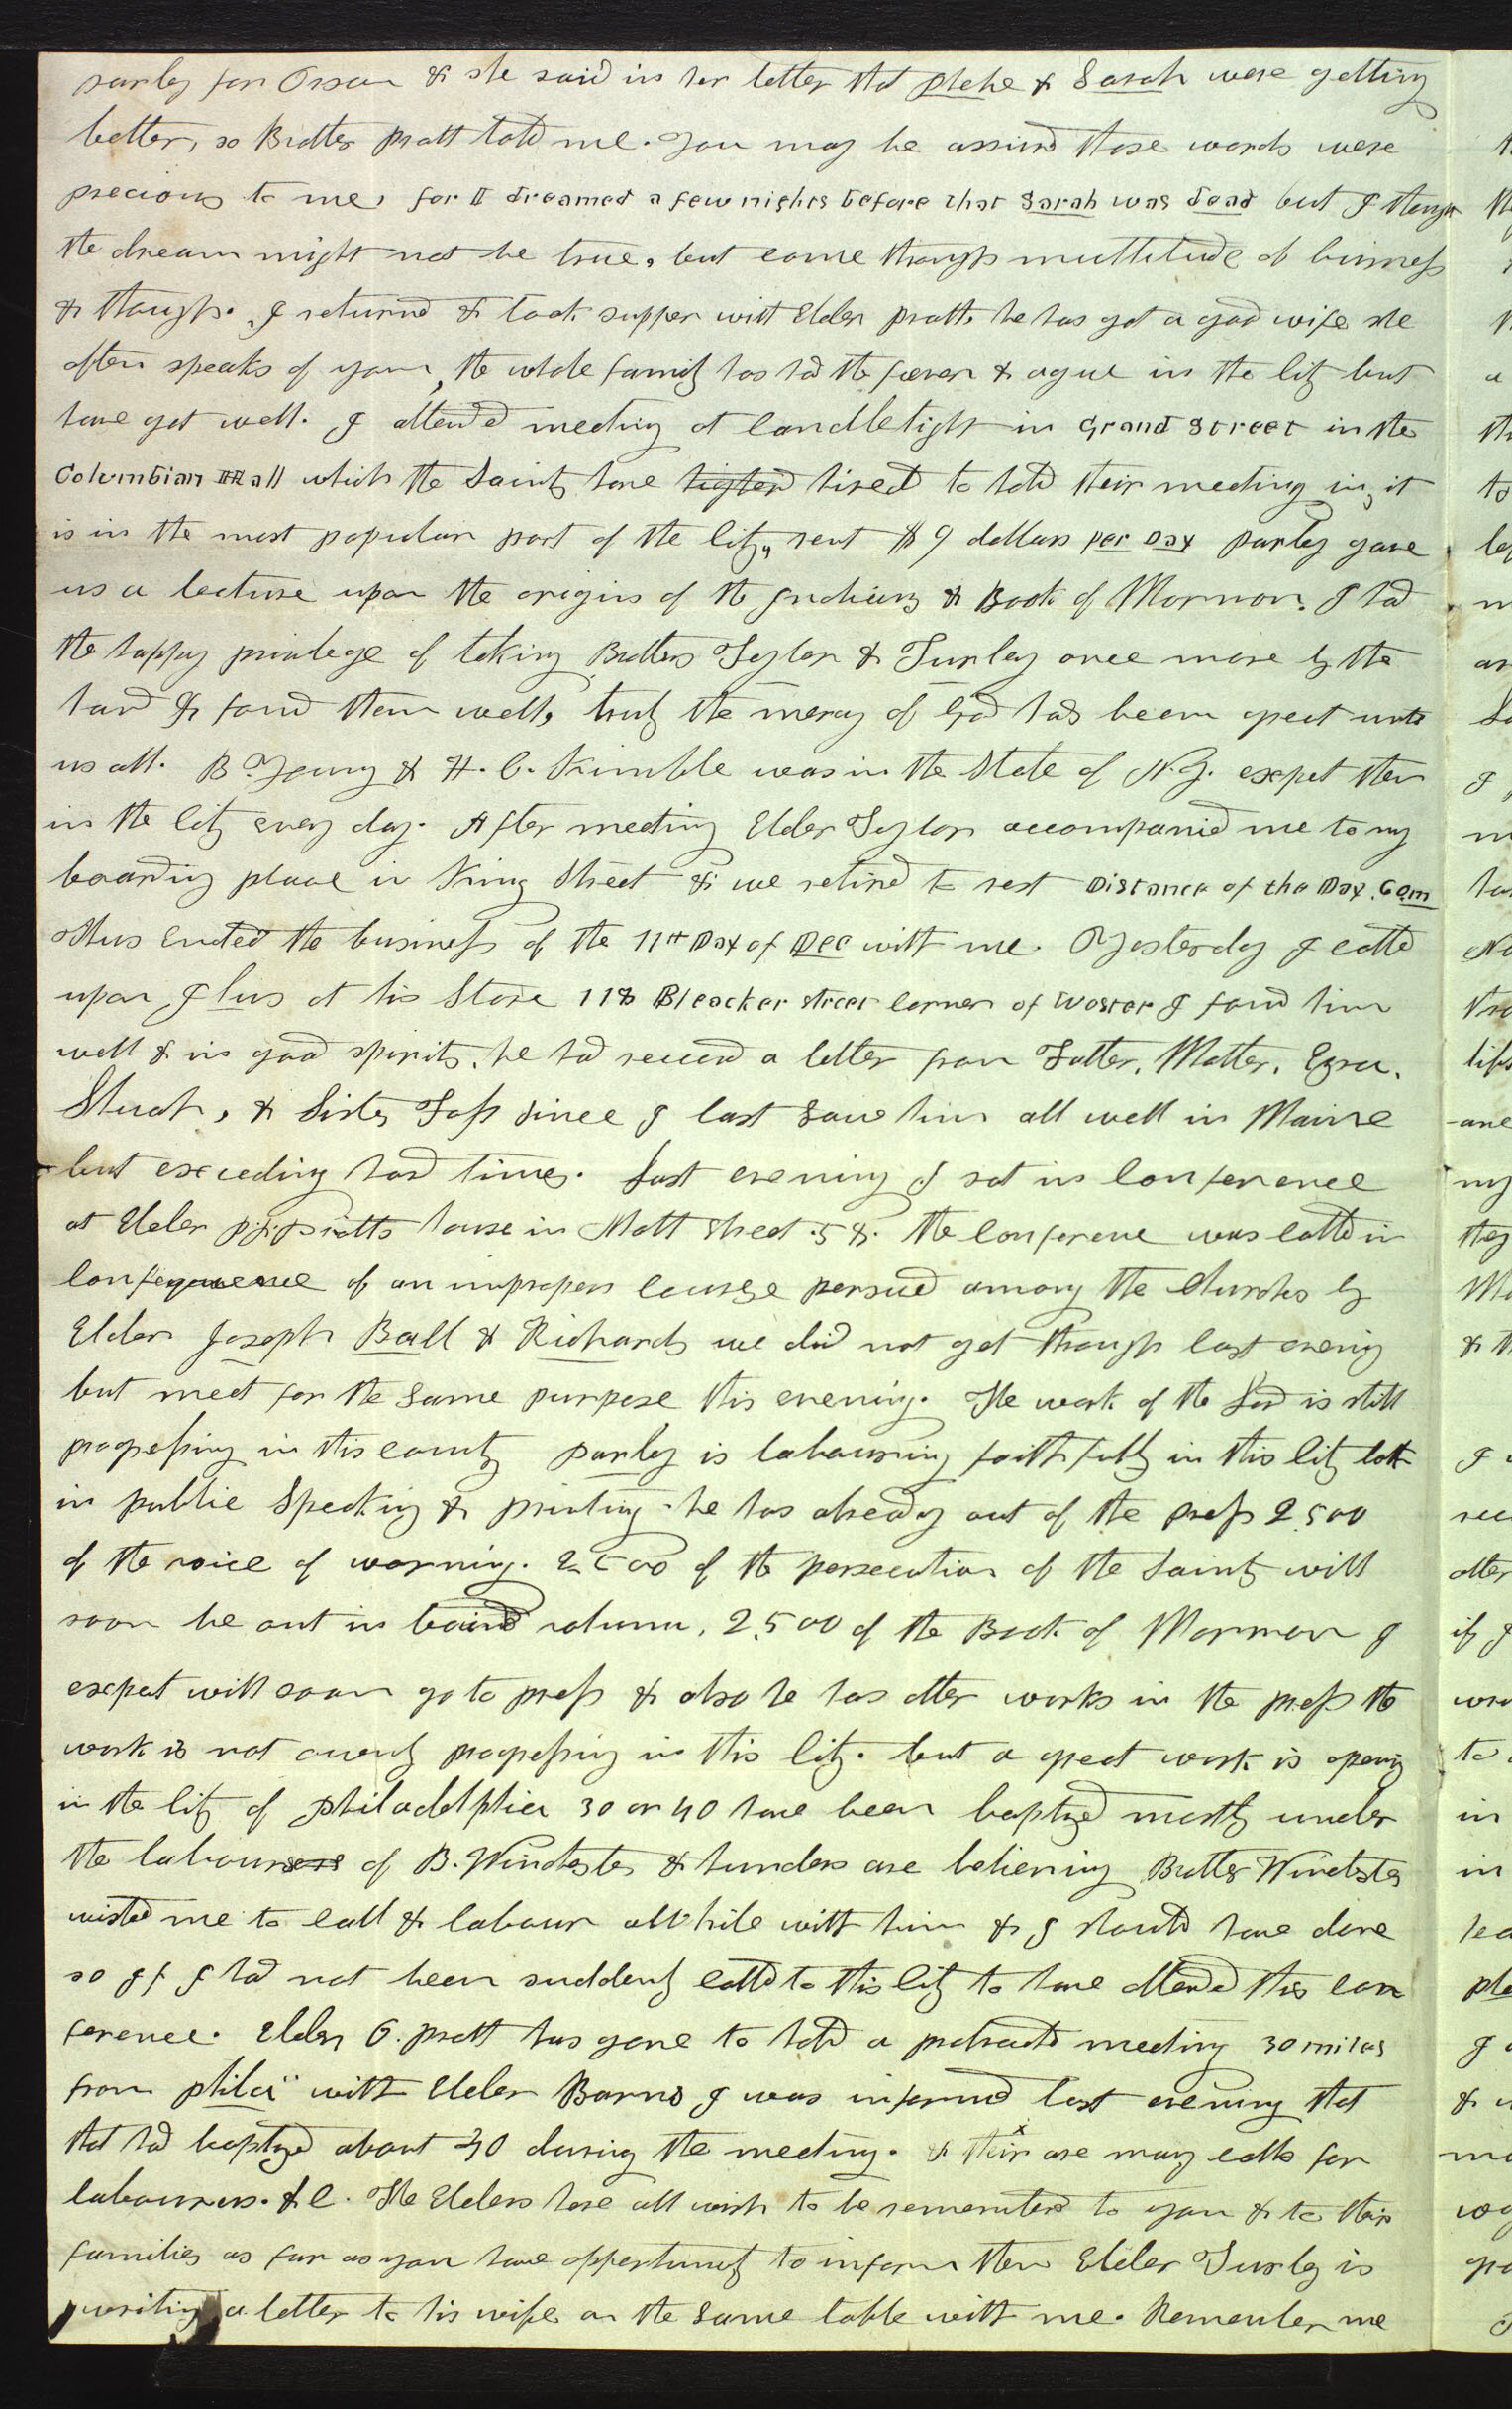 parley for Orson & she said in her letter that Phebe & Sarah were getting
better, so Brother Pratt told me. You may be assurd those words were
precious to me, for I dreamed a few nights before that Sarah was dead but I though
the dream might not be true, but come through multitude of business
& though. I returnd & took supper with Elder Pratt, he has got a good wife she
often speaks of you, the whole family has had the fever & ague in the City but
have got well. I attended meeting at Candlelight in Grand Street in the
Columbian Hall which the Saints have highed hired to hold their meeting in, it
is in the most popular part of the City, rent $9 dollars per Day Parley gave
us a lecture upon the origin of the Indians & Book of Mormon. I had
the happy privilege of taking Brothers Taylor & Turley once more by the
hand & found them well, truly the mercy of God has been great unto
us all. B. Young & H. C. Kimble was in the State of N.Y. expet them
in the City every day. After meeting Elder Taylor accompanid me to my
boarding place in King Street & we retired to rest Distance of the Day. 60 m
Thus Ended the business of the 11th Day of Dec with me. Yesterday I calld
upon Ilus at his Store 118 Bleacker street corner of Woster I found him
well & in good spirits. he had receivd a letter from Father, Mother, Ezra,
Shuah, & Sister Foss since I last saw him all well in Maine
but exceeding hard times. Last evening I sat in Conference
at Elder P. P. Pratts house in Mott street 58. The Conference was calld in
Consequence of an improper course persued among the Churches by
Elder Joseph Ball & Richards we did not get through last evening
but meet for the same purpose this evening. The work of the Lord is still
progressing in this county Parley is labouring faithfully in this City both
in public Speaking & printing he has already out of the press 2,500
of the voice of warning. 2500 of the persecution of the Saints will
soon be out in bound volumn, 2,500 of the Book of Mormon I
expect will soon go to press & also he has other works in the press the
work is not greatly progressing in this City. but a great work is opening
in the City of Philadelphia 30 or 40 have been baptized mostly under
the labours of B. Winchester & hunders are believing Brother Winchester
wished me to call & labour awhile with him & I should have done
so If I had not been suddenly calld to this City to have attend this con
ference. Elder O. Pratt has gone to hold a protracted meeting 30 miles
from Phila with Elder Barns I was informd last evening that
that had baptized about 30 during the meeting. & their are many calls for
labourers. &c. The Elders here all wish to be remembered to you & to their
families as far as you have oppertunity to inform them Elder Turley is
writing a letter to his wife on the same table with me. Remember me